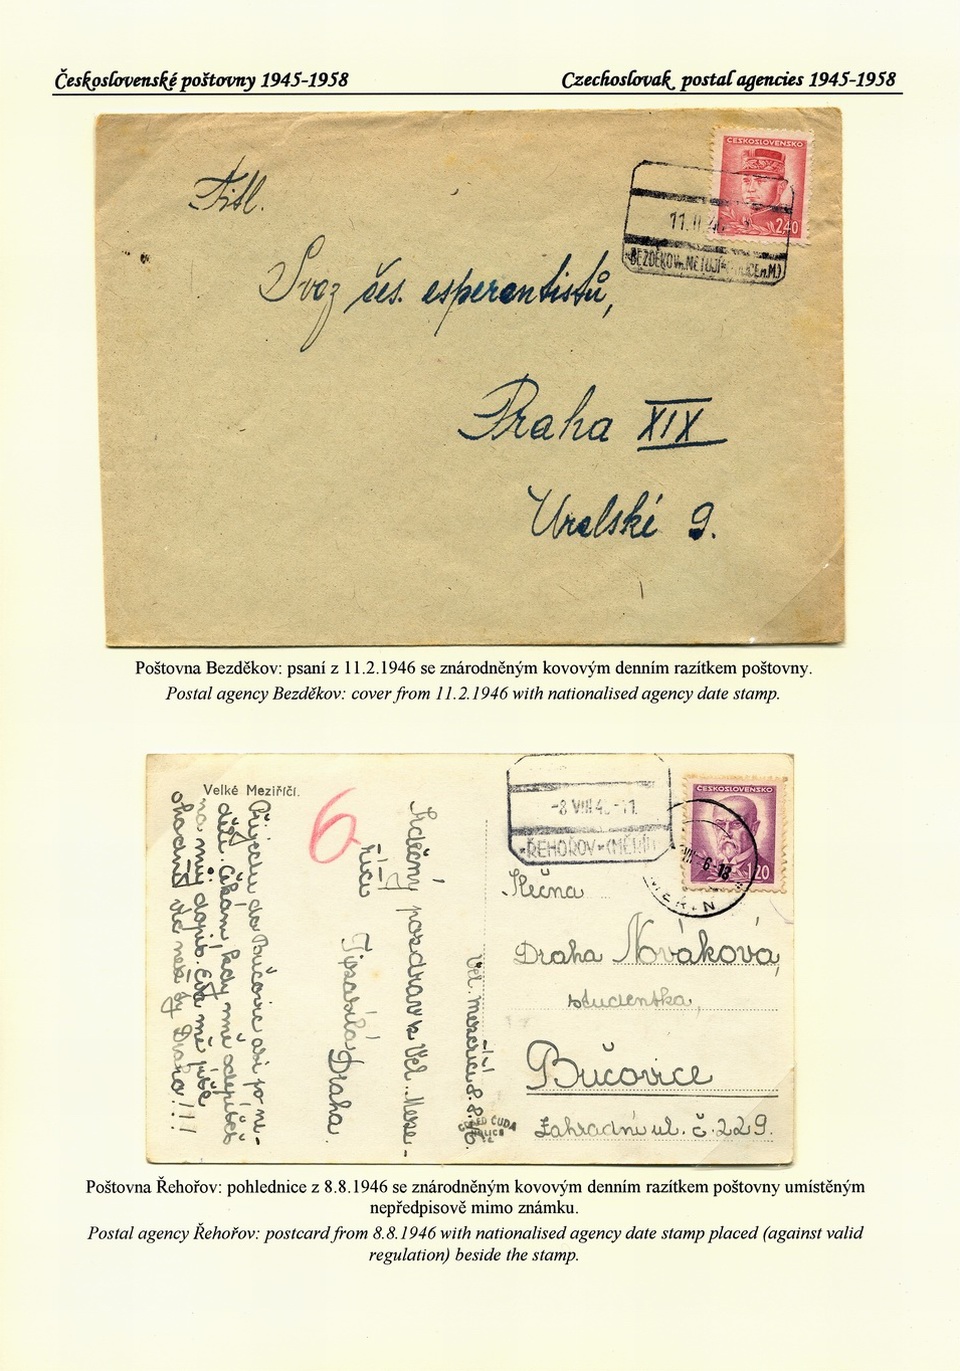 Československé poštovny 1945-1958
Czechoslovak postal agencies 1945-1958
ČESKOSLOVENSKO
2,40
11.II.46
BEZDĚKOV n. METUJÍ
Titl.
Svaz čes. esperantistů,
Praha XIX
Uralské 9.
Poštovna Bezděkov: psaní z 11.2.1946 se znárodněným kovovým denním razítkem poštovny.
Postal agency Bezděkov: cover from 11.2.1946 with nationalised agency date stamp.
Velké Meziříčí.
Přijedu do Bučovic asi po ne-
děli. Čekám, kdy mně odepíšeš
na můj dopis. Eva mě píše
víc než ty Draho!!!
6
Srdečný pozdrav z Vel. Meze-
říčí
Draha.
Vel. Mezeříčí 8.8.46.
ČESKOSLOVENSKO
1,20
-8.VIII.4
ŘEHOŘOV (MĚŘÍN)
MĚŘÍN
Slečna
Draha Nováková,
studentka,
Bučovice
Zahradní ul. č. 229.
Poštovna Řehořov: pohlednice z 8.8.1946 se znárodněným kovovým denním razítkem poštovny umístěným
nepředpisově mimo známku.
Postal agency Řehořov: postcard from 8.8.1946 with nationalised agency date stamp placed (against valid
regulation) beside the stamp.